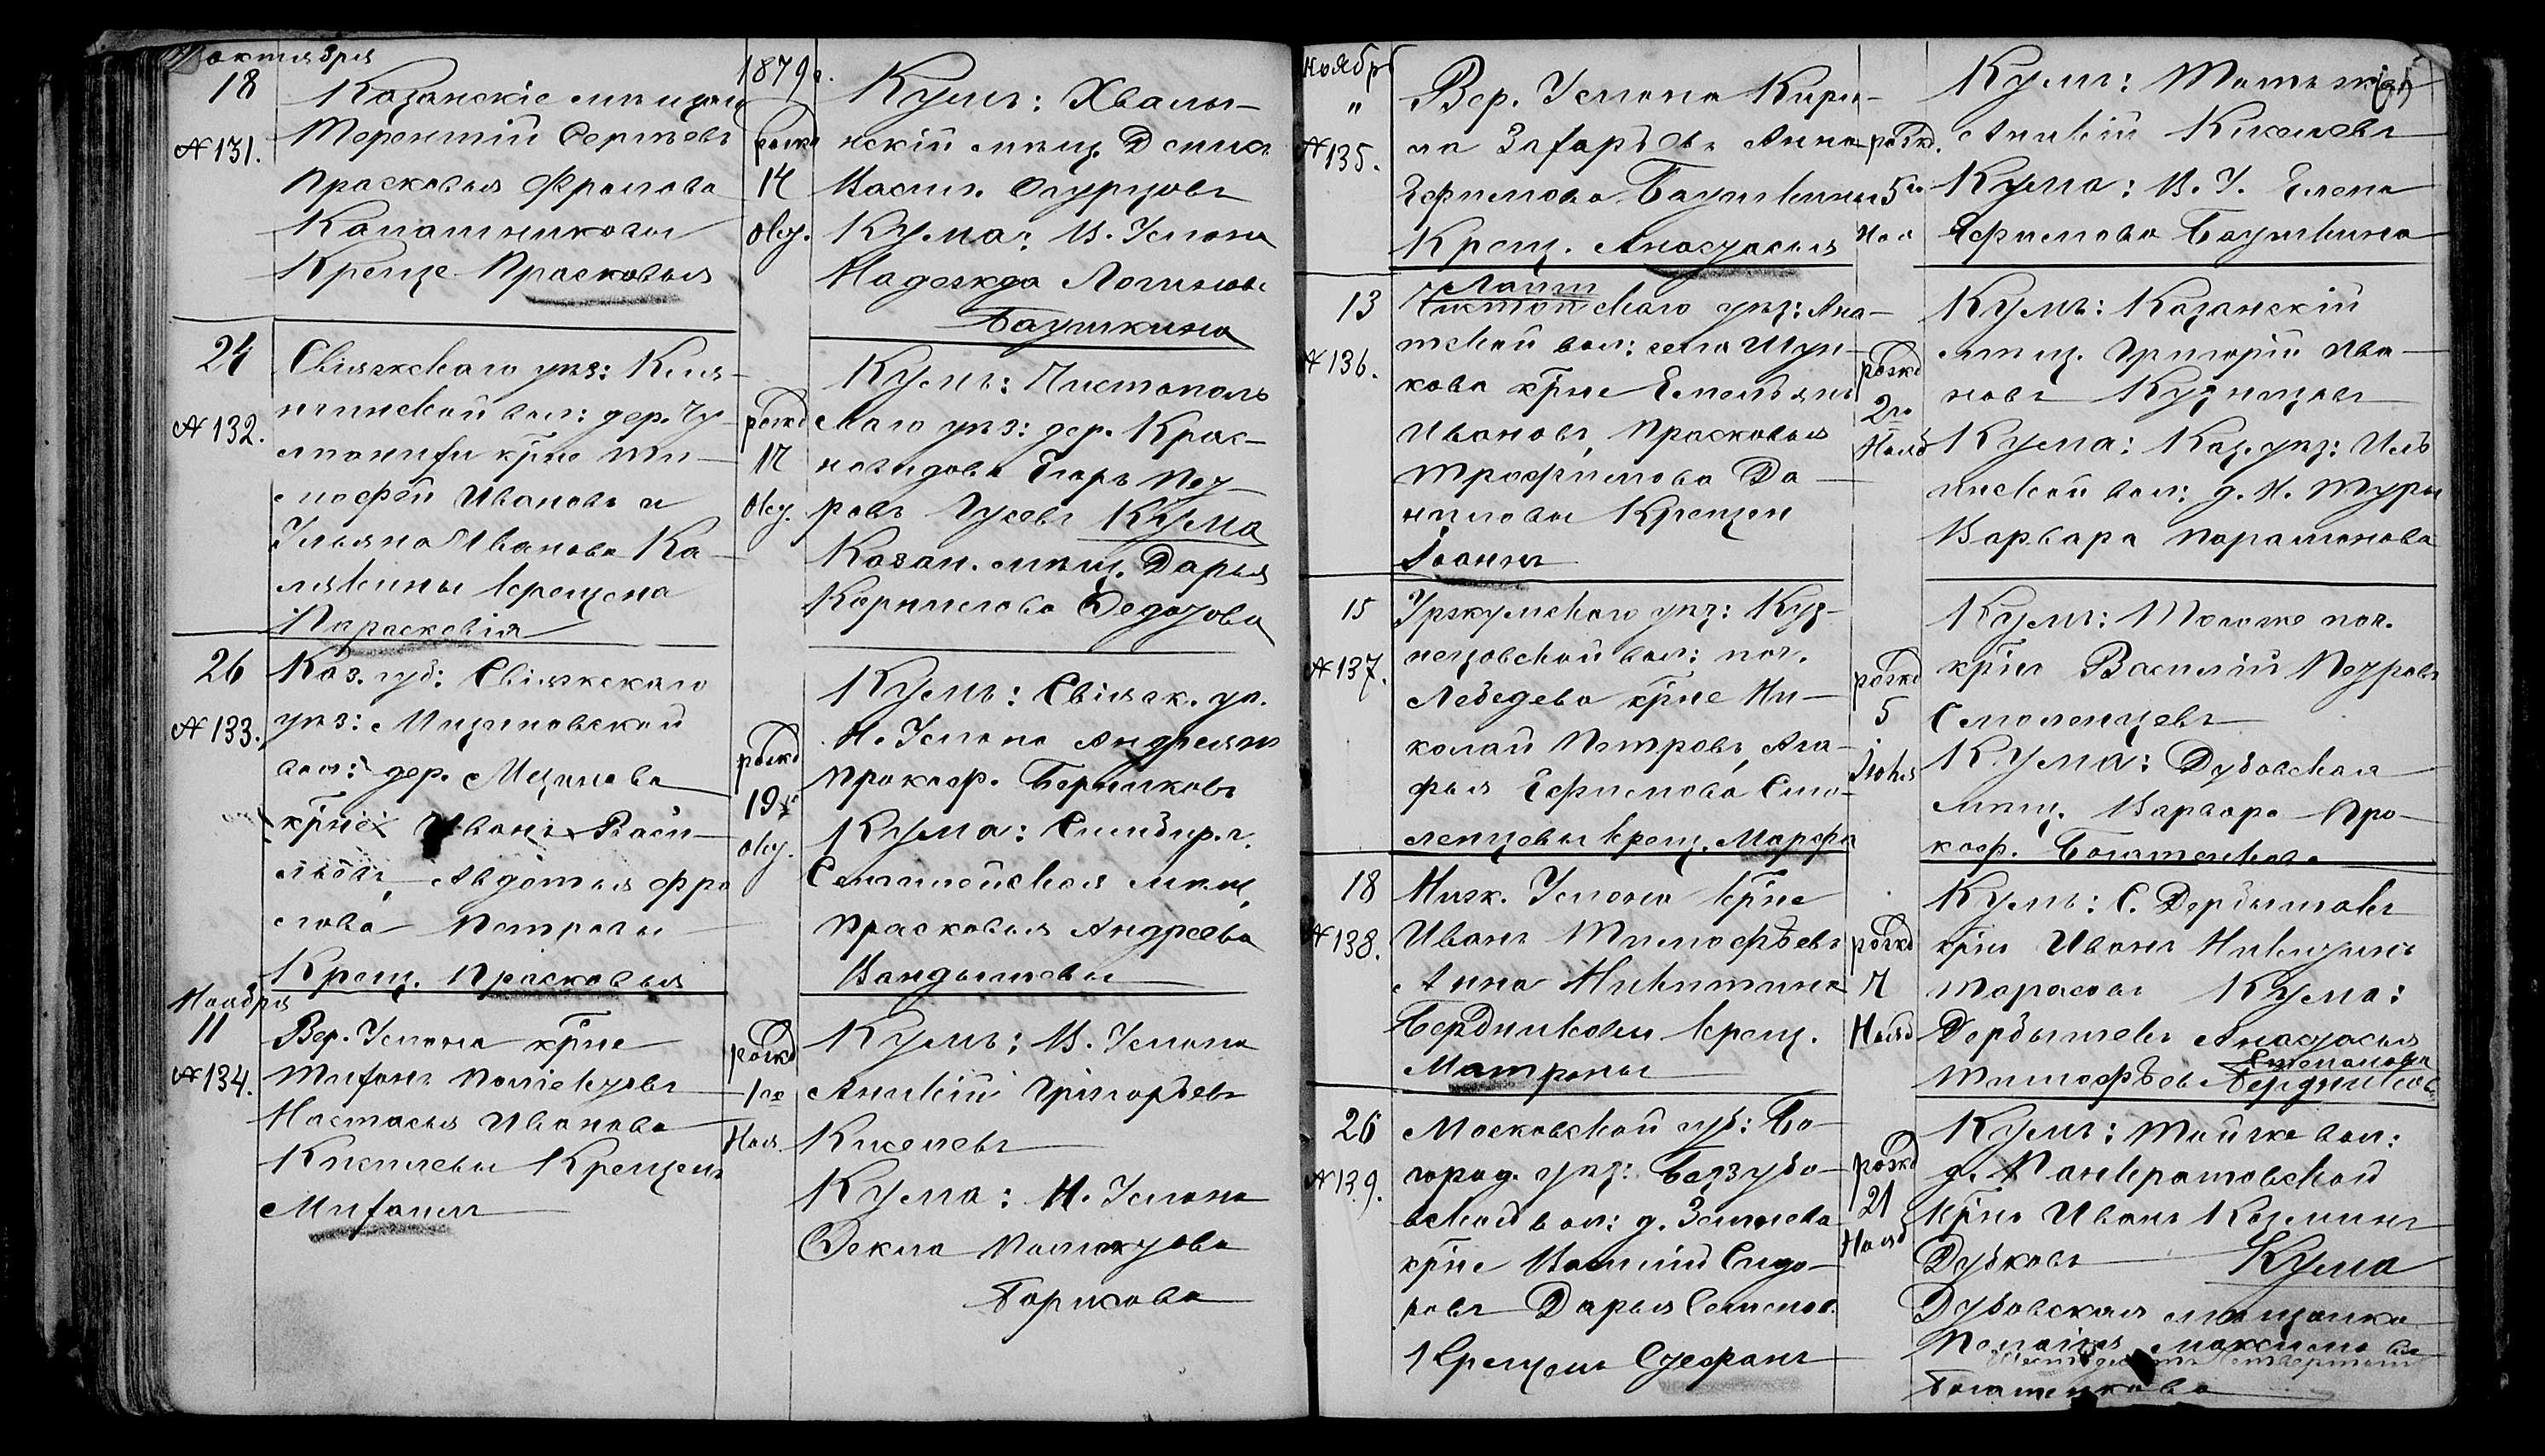 октября
18
№131.
Казанскіе мѣщан
Терентій Сергѣевъ
Прасковья Фролова
Калашниковы
Креще Прасковья
1879г.
рожд
14
Окт.
Кумъ: Хвалын-
нскій мѣщ. Денис
Васил. Огурцовъ
Кума: В. Услона
Надежда Логинов.
Баушкина
24
№132.
Свіяжскаго уѣз: Кля-
нчинской вол: дер.
крне Ти-
мофей Ивановъ и
Ульяна Иванова Ка-
млевины крещена
Параскевія
рожд
17
Окт.
Кумъ: Чистополь
скаго уѣз: дер. Крас-
новидова Егоръ Пет
ровъ Гусевъ Кума
Казан. мѣщ. Дарья
Корнилова Федотова
26
№133.
Каз. губ: Свіяжскаго
уѣз:
вол: дер.
крне Иванъ Васи-
льевъ, Авдотья Фро
лова Петровы
Крещ. Прасковья
рожд
19го
Окт.
Кумъ: Свіяжск. уѣ.
Н. Услона Андреянъ
Прокоф. Бердиковъ
Кума: Симбир. г.
Сенгилейская мѣщ.
Прасковья Андреева
Вандышевы
Ноября
11
№134.
Вер. Услона крне
Тихонъ
Настасья Иванова
Киселевы Крещенъ
Михаилъ
рожд
1го
Ноя.
Кумъ: В. Услона
Аникій Григорьевъ
Киселевъ
Кума: Н. Услона
Фекла
Борисова
Ноябрь
"
№135.
Вер. Услона Кири-
ла Захаръевъ Анна
Ефимова Баушкины
Крещ. Анастасья
рожд.
5го
Ноя
Кумъ: Тотъ же
Аникій Киселевъ
Кума: В. У. Елена
Ефимова Баушкина
13
№136.
Лаиш
Чистопскаго уѣз: Ана-
тской вол: села Шун-
кова крне Емельянъ
Ивановъ, Прасковья
Трофимова Да-
ниловы Крещен
Іоаннъ
рожд
2го
Нояб
Кумъ: Казанскій
мѣщ. Григорій Ива-
новъ Кузнецовъ
Кума: Каз. уѣз: Иль
инской вол: д. Н. Туры
Варвара Парамонова
15
№137.
Уржумскаго уѣз: Куз-
нецовской вол: поч.
Лебедева крне Ни-
колай Петровъ, Ага-
фья Ефимова Смо-
ленцевы крещ. Марфа
рожд
5
Іюня
Кумъ: Того же поч.
крнъ Василій Петровъ
Смоленцевъ
Кума: Дубовская
мѣщ. Варвара Про-
коф. Богатенкова
18
№138.
Ниж. Услона крне
Иванъ Тимофѣевъ
Анна Никитина
Бердниковы крещ.
Матроны
рожд
7
Нояб
Кумъ: С. Дербышевъ
крнъ Иванъ Никитинъ
Тарасовъ Кума:
Дербышевъ Анастасья
Степанова
Тимофѣев Бердников
26
№139.
Московской губ: Бо-
город. уѣз: Беззубо-
вской вол: д.
крне Василій Сидо-
ровъ Дарья Семенов.
Крещенъ Стефанъ
рожд
21
Нояб
Кумъ: Той же вол:
д. Панкратовской
крнъ Иванъ Козминъ
Дубковъ Кума
Дубовская мѣщанка
Пелагія Максимова
Богатенкова